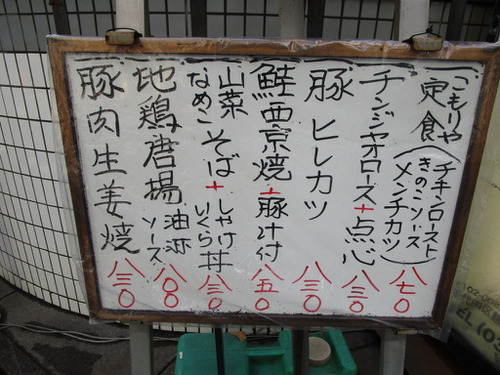 「こもりや
定食（チキンロースト
きのこソース
メンチカツ）八七〇
チンジャオロース+点心 八三〇
豚ヒレカツ 八三〇
鮭西京焼+豚汁付 八五〇
山菜
なめこそば+しゃけ
いくら丼 八三〇
地鶏唐揚 油淋
ソース 八〇〇
豚肉生姜焼 八三〇